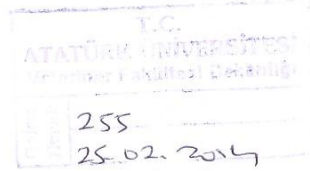 T.C.
ATATÜRK ÜNİVERSİTESİ
Veteriner Fakültesi Dekanlığı
255
25.02.2014